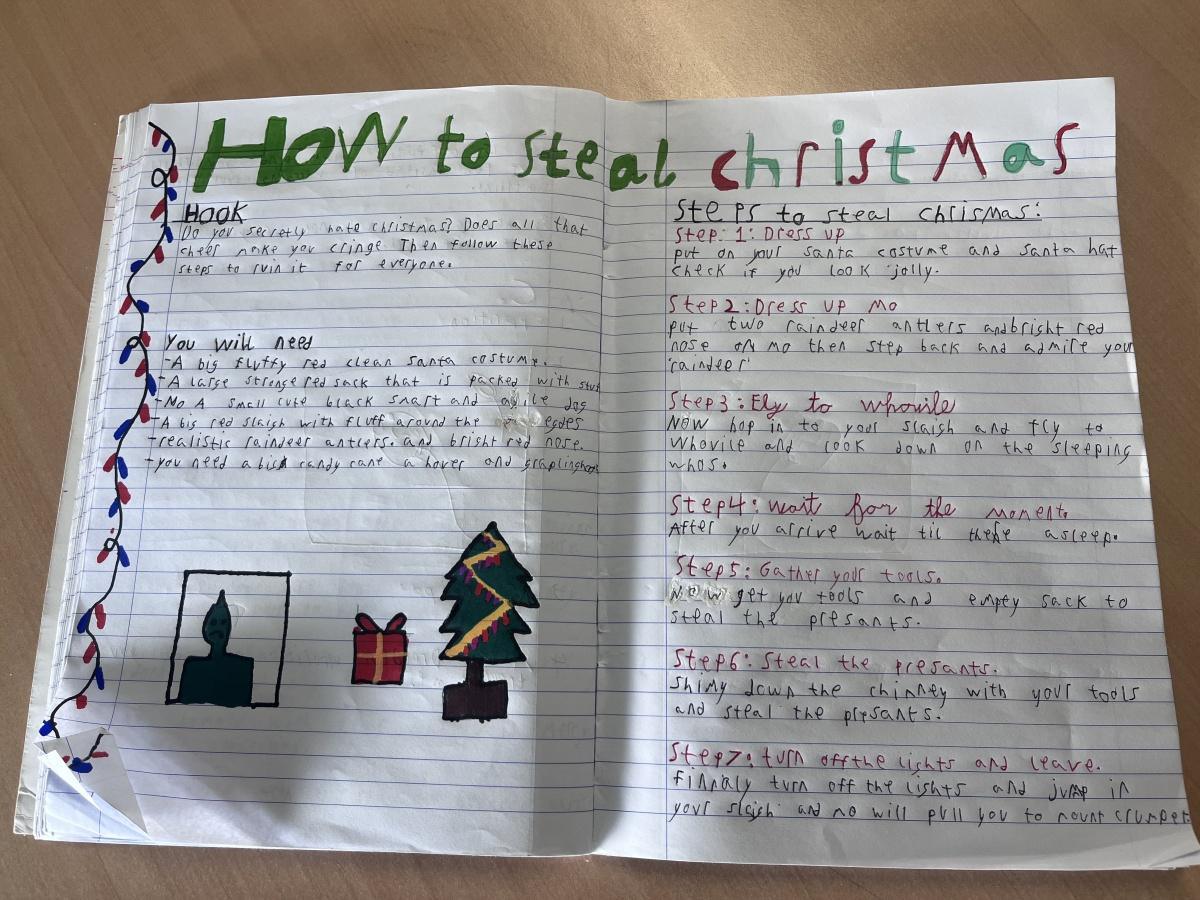 How to steal christmas
Hook
Do you secretly hate christmas? Does all that
cheer make you cringe Then follow these
steps to ruin it for everyone.
You will need
-A big fluffy red clean santa costume.
-A large stronge red sack that is packed with stuf
-Mo A small cute black smart and agile dog
-A big red slaigh with fluff around the egdes
-realistic raindeer antlers. and bright red nose.
-you need a candy cane a hover and graplinghook
Steps to steal chrismas:
Step: 1: Dress up
put on your santa costume and santa hat
check if you look jolly.
Step2: Dress up Mo
put two raindeer antlers and bright red
nose on mo then step back and admire your
'raindeer'
Step3: Fly to whovile
Now hop in to your slaigh and fly to
whovile and look down on the sleeping
whos.
Step4: wait for the moment.
After you arrive wait til asleep.
Step5: Gather your tools.
Now get you tools and empty sack to
steal the presants.
Step6: Steal the presants.
Shimy down the chimney with your tools
and steal the presants.
Step7: turn off the lights and leave.
finnaly turn off the lights and jump in
your slaigh and mo will pull you to mount crumpet